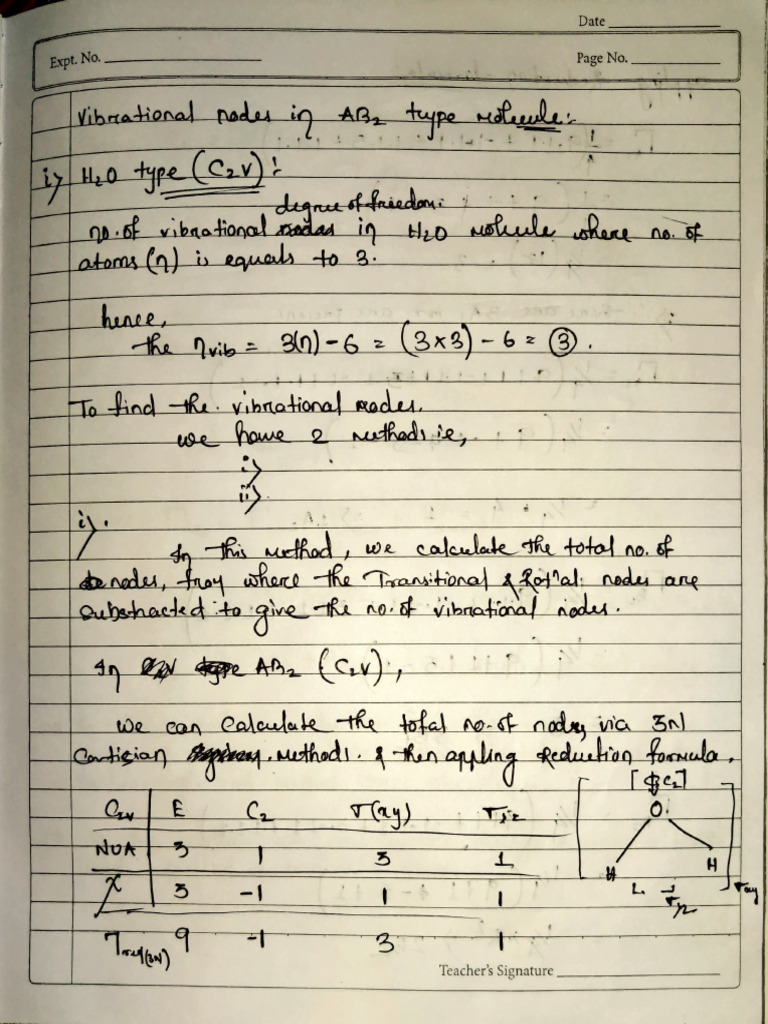 Date
Expt. No.
Page No.
Vibrational nodes in AB2 type molecule:-
i> H2O type (C2V):
degree of freedom:
no. of vibrational in H2O molecule where no. of
atoms (n) is equals to 3.
hence,
the ηvib = 3(n) - 6 = (3×3) - 6 = 3.
To find the vibrational modes.
we have 2 methods ie,
i>
ii>
i>.
In this method, we calculate the total no. of
nodes, where the Transitional & Rotnal nodes are
substracted to give the no. of vibrational nodes.
In AB2 (C2V),
we can calculate the total no. of nodes via 3N
Cartisian Methods. & then appling reduction formula.
C2V E C2 σ(xy) σyz
NUA 3 1 3 1
χ 3 -1 1 1
(3N) 9 -1 3 1
C2]
O
H H
σyz
σxy
Teacher's Signature